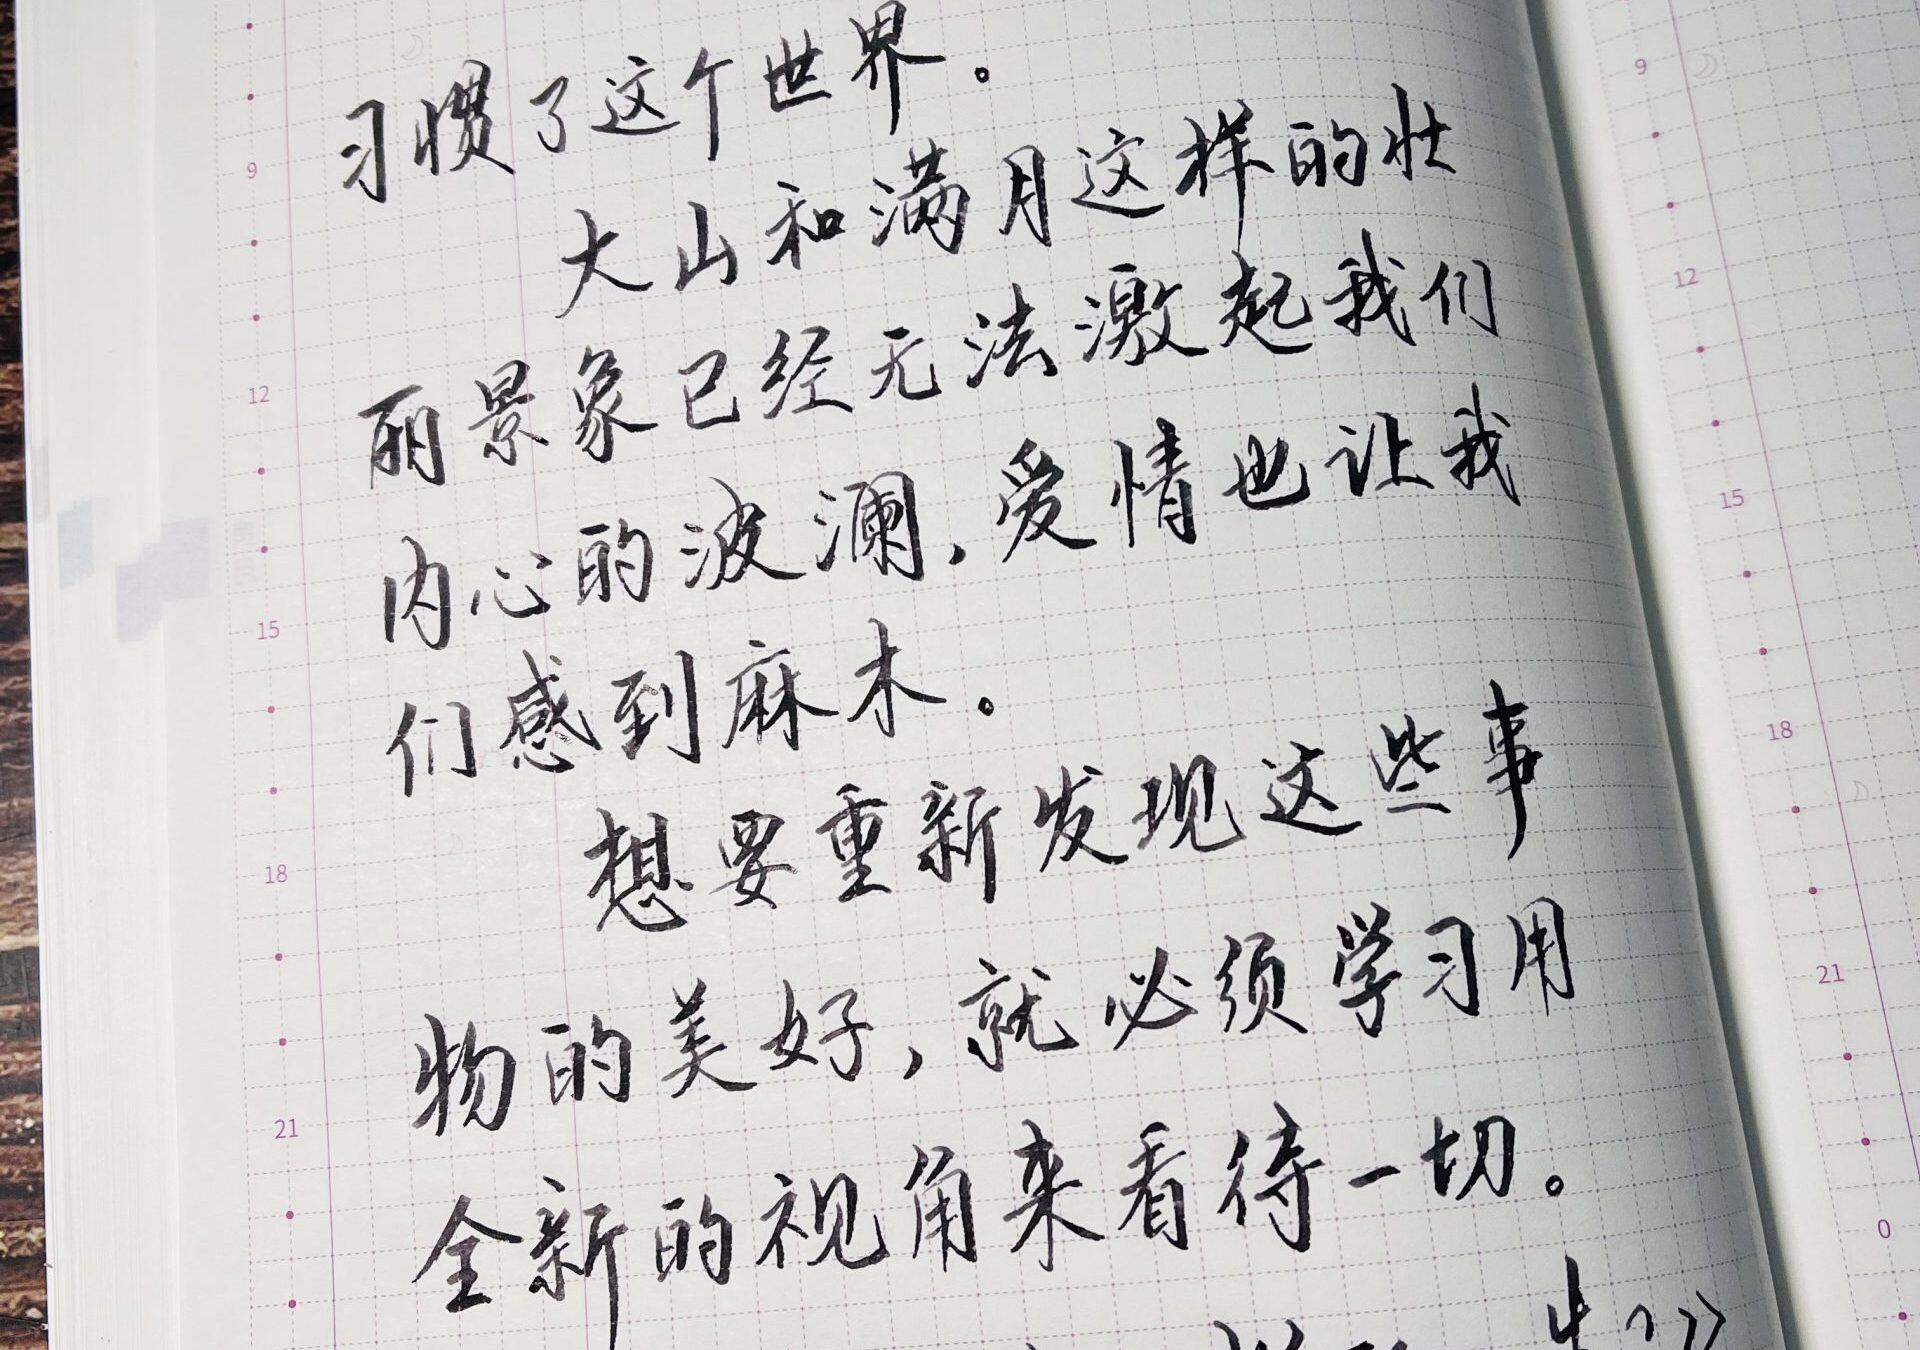 习惯了这个世界。
大山和满月这样的壮
丽景象已经无法激起我们
内心的波澜，爱情也让我
们感到麻木。
想要重新发现这些事
物的美好，就必须学习用
全新的视角来看待一切。
9
12
15
18
21
9
12
15
18
21
0